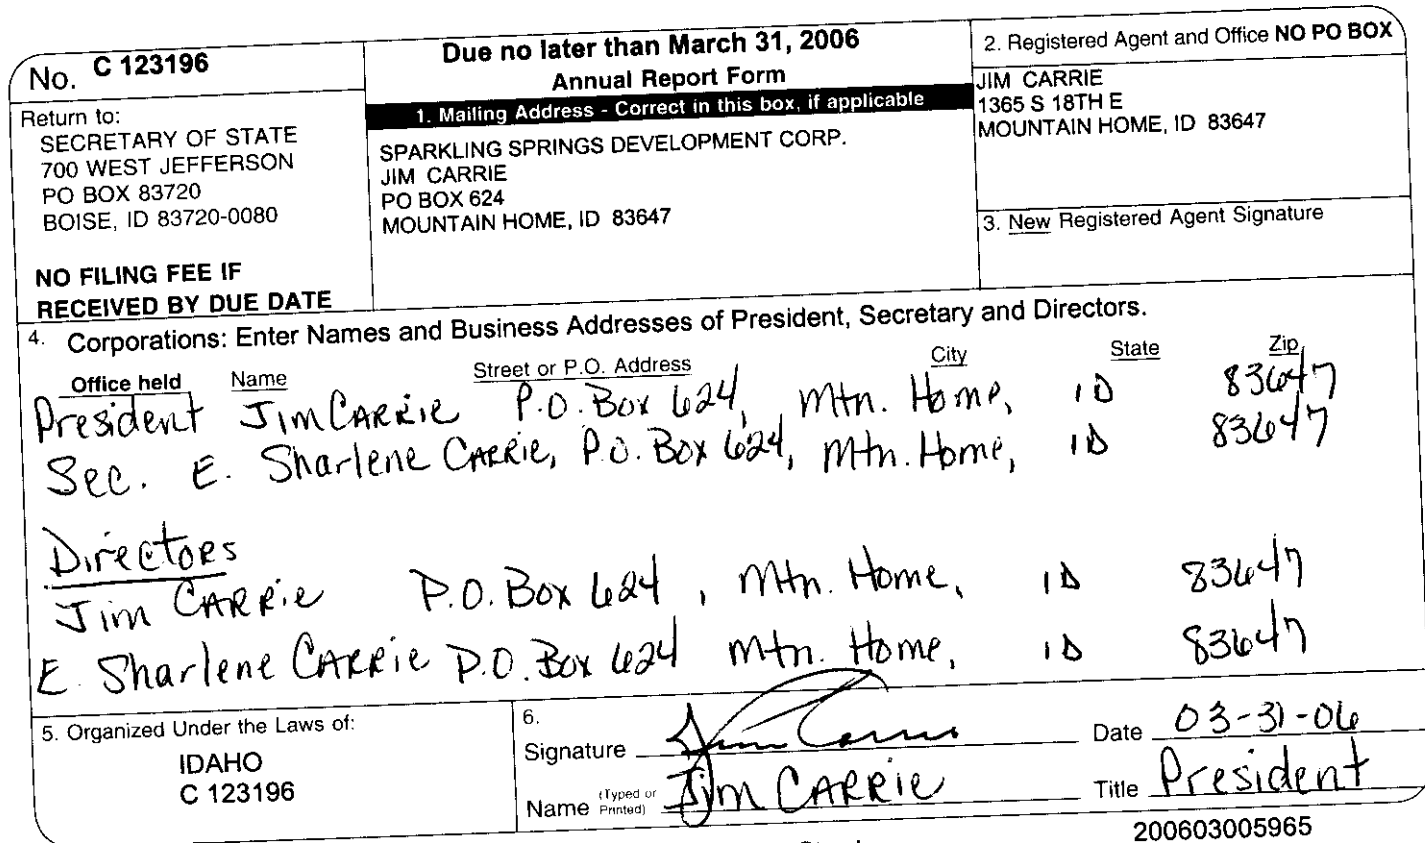 No. C 123196
Return to:
SECRETARY OF STATE
700 WEST JEFFERSON
PO BOX 83720
BOISE, ID 83720-0080
NO FILING FEE IF
RECEIVED BY DUE DATE
Due no later than March 31, 2006
Annual Report Form
1. Mailing Address - Correct in this box, if applicable
SPARKLING SPRINGS DEVELOPMENT CORP.
JIM CARRIE
PO BOX 624
MOUNTAIN HOME, ID 83647
2. Registered Agent and Office NO PO BOX
JIM CARRIE
1365 S 18TH E
MOUNTAIN HOME, ID 83647
3. New Registered Agent Signature
4. Corporations: Enter Names and Business Addresses of President, Secretary and Directors.
Office held Name Street or P.O. Address City State Zip
President Jim CARRIE P.O. Box 624, Mtn. Home, ID 83647
Sec. E. Sharlene CARRIE, P.O. Box 624, Mtn. Home, ID 83647
Directors
Jim CARRIE P.O. Box 624, Mtn. Home, ID 83647
E. Sharlene CARRIE P.O. Box 624 Mtn. Home, ID 83647
5. Organized Under the Laws of:
IDAHO
C 123196
6.
Signature Jim Carrie Date 03-31-06
Name (Typed or Printed) Jim CARRIE Title President
200603005965